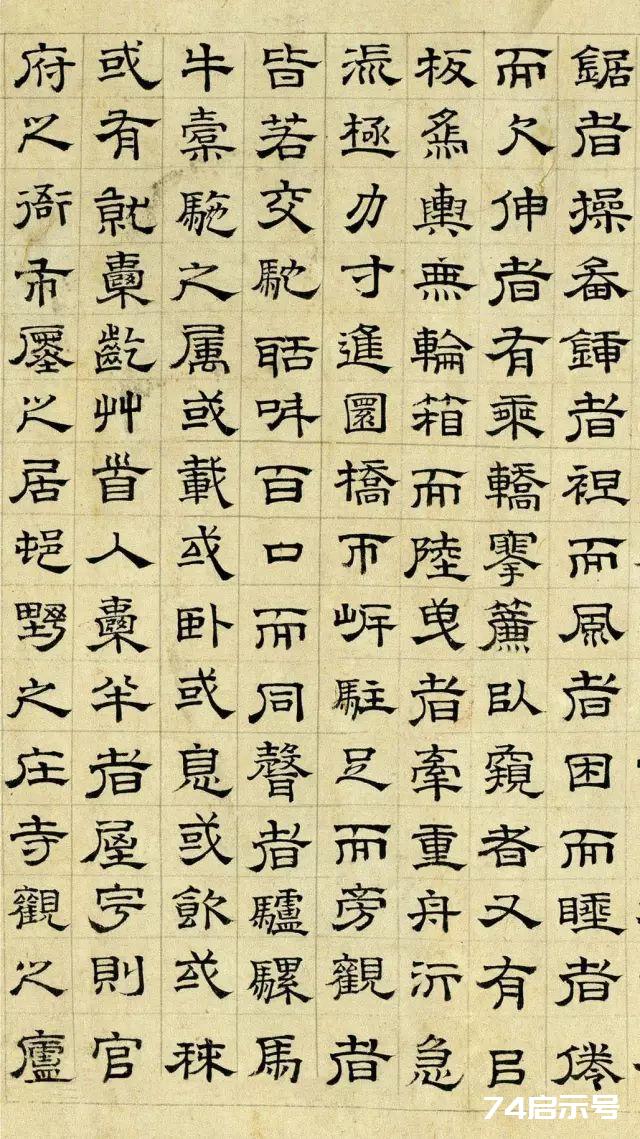 鋸者操畚鍤者袒而風者困而睡者倦
而欠伸者有乘轎搴簾臥窺者又有㠯
板爲輿無輪箱而陸曳者牽重舟泝急
流極力寸進圜橋帀岸駐足而旁觀者
皆若交馳聒呌百口而同聲者驢騾馬
牛橐駞之属或載或卧或息或飲或秣
或有就囊齕艸首入囊半者屋宇則官
府之衙市廛之居邨野之庄寺觀之廬
74启示号